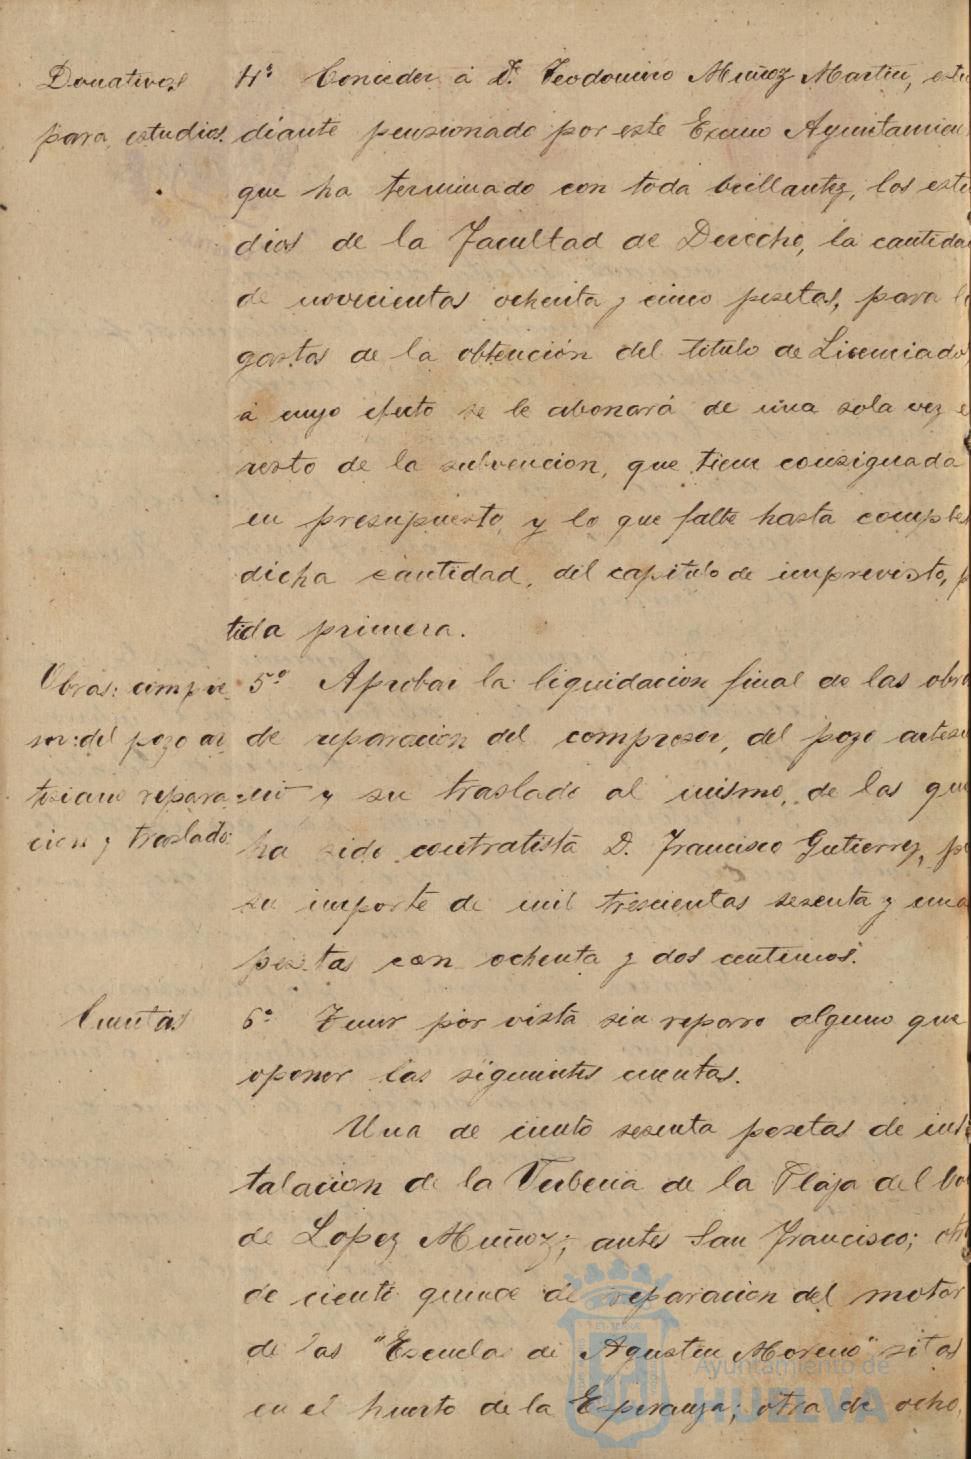 Donativos
para estudios.
4º Conceder á D. Teodomiro Muñoz Martin, estu
diante pensionado por este Excmo Ayuntamien
que ha terminado con toda brillantez, los estu
dios de la Facultad de Derecho, la cantida
de novecientas ochenta y cinco pesetas, para l
gastos de la obtención del titulo de Licenciado,
á cuyo efecto se le abonará de una sola vez e
resto de la subvencion, que tiene consignada
en presupuesto, y lo que falte hasta comple
dicha cantidad, del capitulo de imprevisto, p
tida primera.
Obras: compre
sor: del pozo ar
tesiano repara
cion y traslado:
5º Aprobar la liquidacion final de las obra
de reparacion del compresor, del pozo artesi
ano y su traslado al mismo, de las que
ha sido contratista D. Francisco Gutierrez, p
su importe de mil trescientas sesenta y una
pesetas con ochenta y dos centimos.
Cuentas
6º Tener por vista sin reparo alguno que
oponer las siguientes cuentas.
Una de ciento sesenta pesetas de ins
talacion de la Verbena de la Plaza del
de López Muñoz; antes San Francisco; otr
de ciento quince de reparacion del motor
de las "Escuelas de Agustin Moreno" sitas
en el huerto de la Esperanza; otra de ocho,
Ayuntamiento de
HUELVA